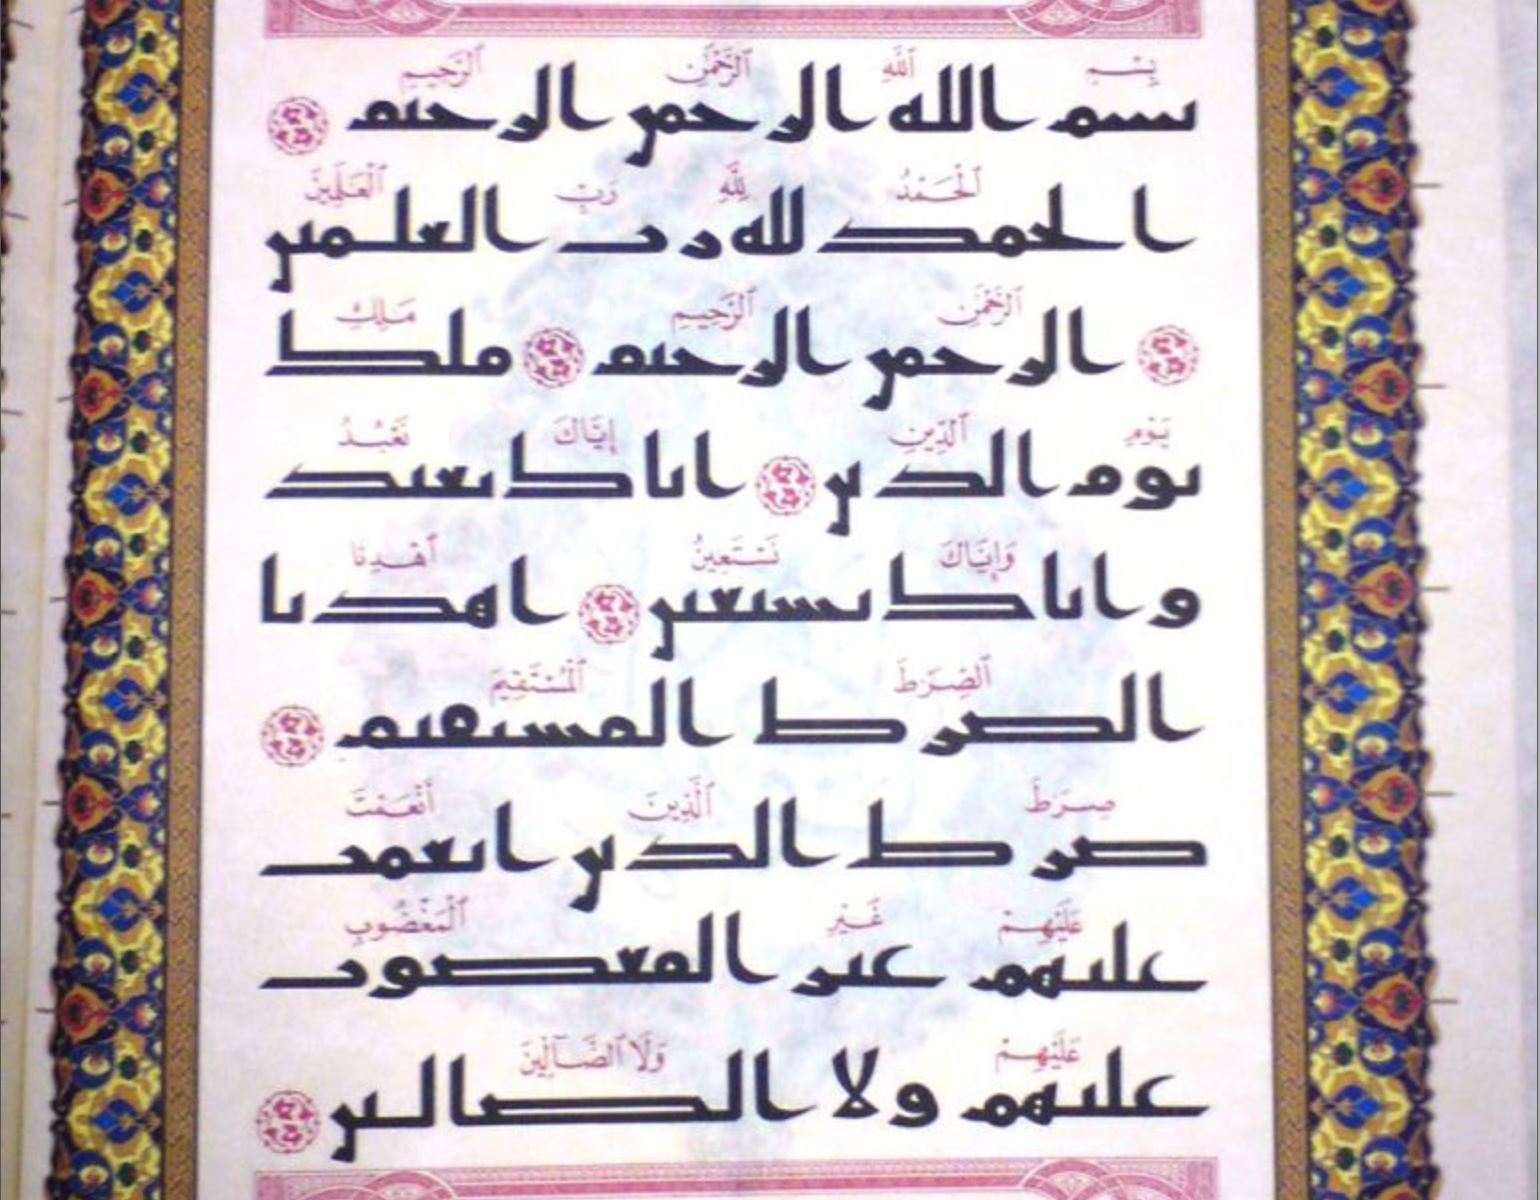 بِسْمِ ٱللَّهِ ٱلرَّحْمَٰنِ ٱلرَّحِيمِ
بسم الله الرحمن الرحيم
ٱلْحَمْدُ لِلَّهِ رَبِّ ٱلْعَٰلَمِينَ
الحمد لله رب العلمين
ٱلرَّحْمَٰنِ ٱلرَّحِيمِ مَٰلِكِ
الرحمن الرحيم ملك
يَوْمِ ٱلدِّينِ إِيَّاكَ نَعْبُدُ
يوم الدين اياك نعبد
وَإِيَّاكَ نَسْتَعِينُ ٱهْدِنَا
و اياك نستعين اهدنا
ٱلصِّرَٰطَ ٱلْمُسْتَقِيمَ
الصرط المستقيم
صِرَٰطَ ٱلَّذِينَ أَنْعَمْتَ
صرط الذين انعمت
عَلَيْهِمْ غَيْرِ ٱلْمَغْضُوبِ
عليهم غير المغضوب
عَلَيْهِمْ وَلَا ٱلضَّآلِّينَ
عليهم ولا الضالين